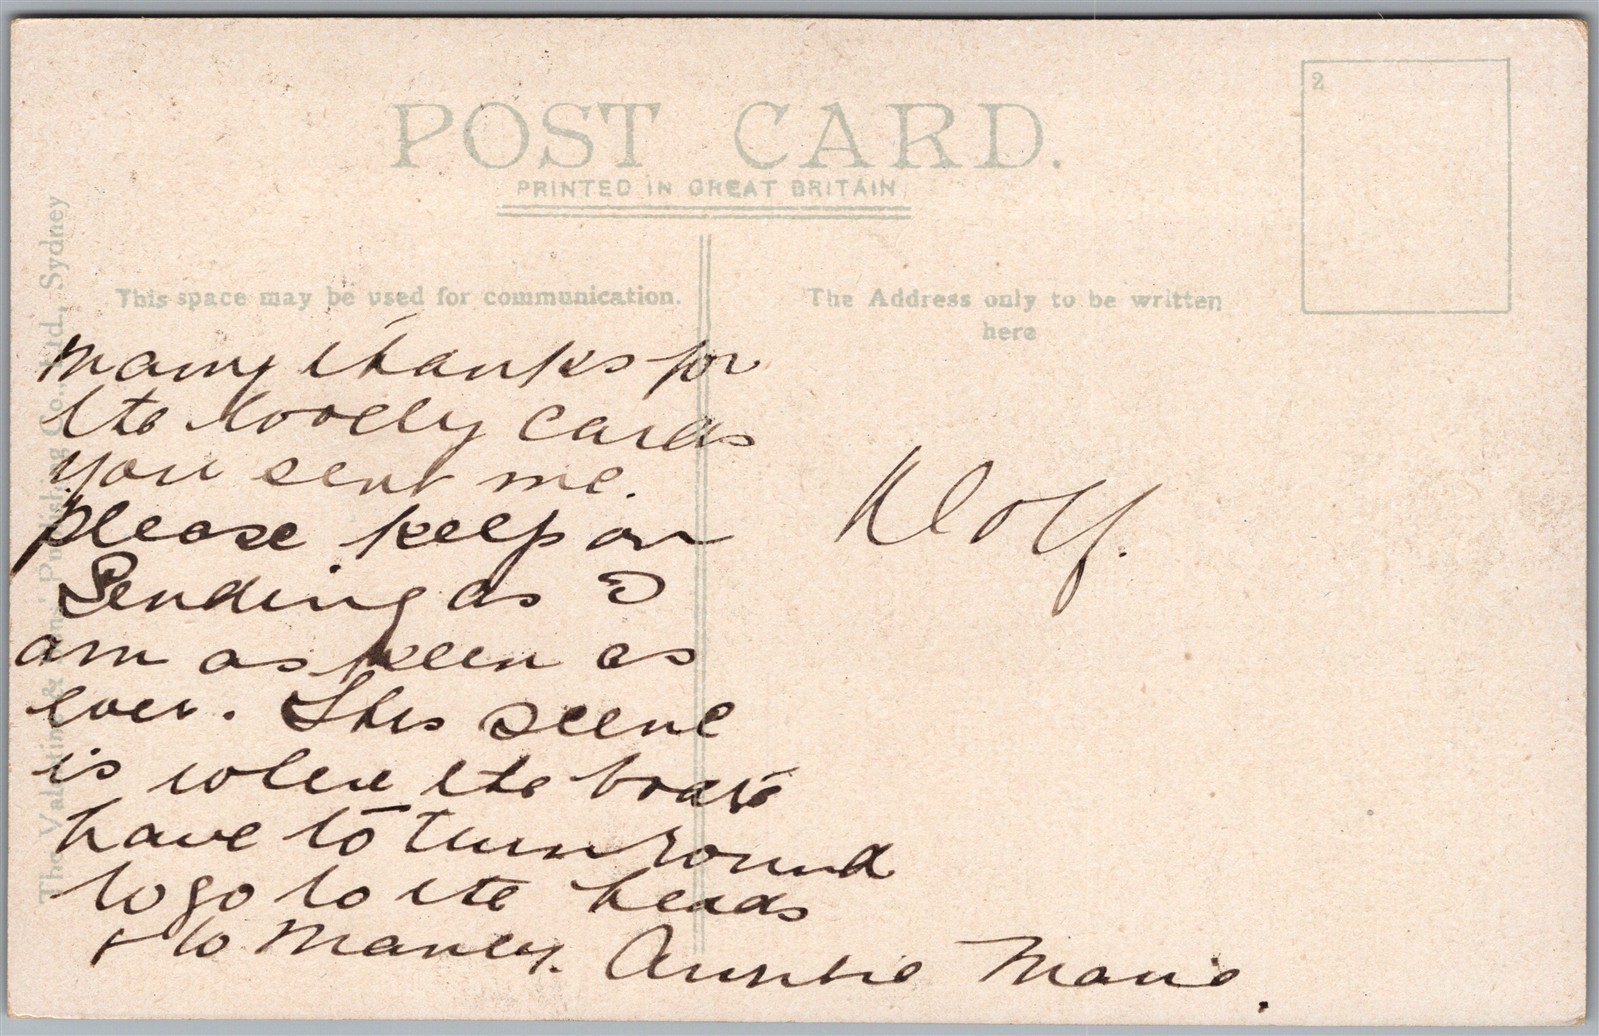 POST CARD.
PRINTED IN GREAT BRITAIN
2
This space may be used for communication.
The Address only to be written
here
The Valentine & Sons Publishing Co., Ltd., Sydney
Many thanks for
the lovely cards
you sent me.
please keep on
Sending as I
am as keen as
ever. This scene
is where the boats
have to turn round
to go to the heads
& to Manley. Auntie Marie.